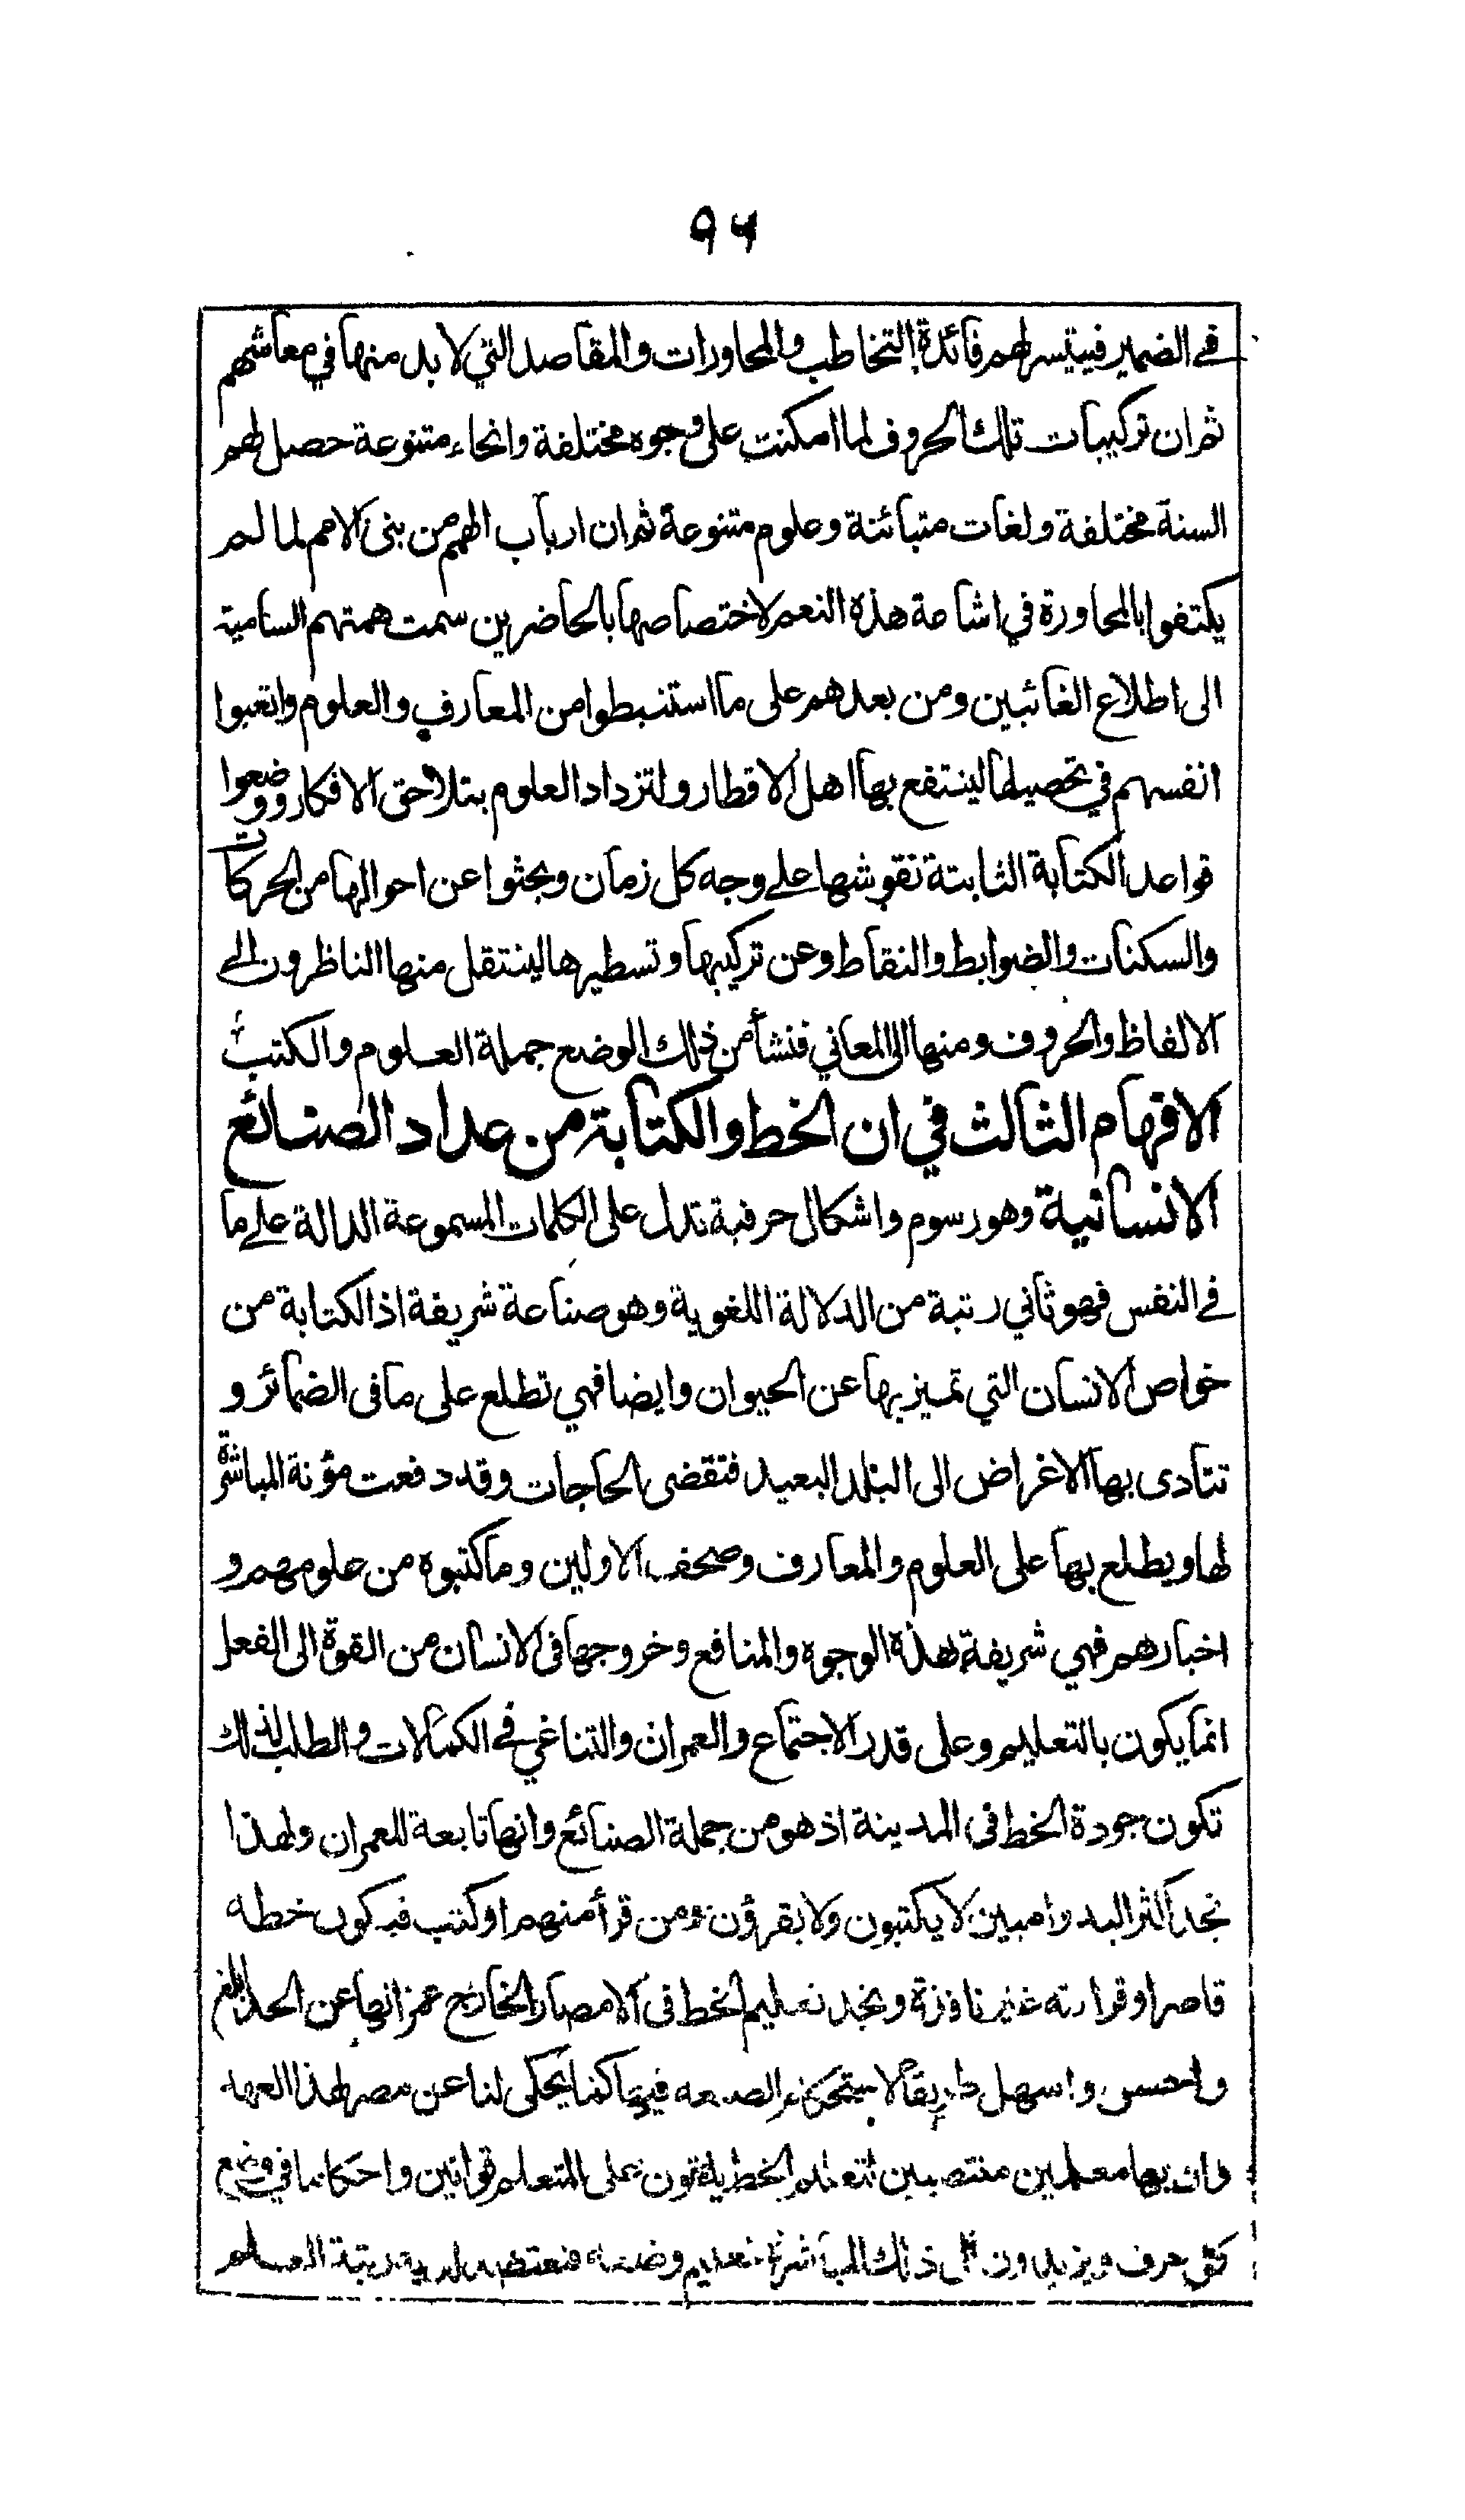 ٩٤
في الضمير فيتيسر لهم فائدة التخاطب والمحاورات والمقاصد التي لا بد منها في معاشهم
ثم ان تركيبات تلك الحروف لما امكنت على وجوه مختلفة وانحاء متنوعة حصل لهم
السنة مختلفة ولغات متبائنة وعلوم متنوعة ثم ان ارباب الهمم من بنى الامم لما لم
يكتفوا بالمحاورة في اشاعة هذه النعم لاختصاصها بالحاضرين سمت همتهم السامية
الى اطلاع الغائبين ومن بعدهم على ما استنبطوا من المعارف والعلوم واتعبوا
انفسهم في تحصيلها لينتفع بها اهل الاقطار ولتزداد العلوم بتلاحق الافكار ووضعوا
قواعد الكتابة الثابتة نقوشها على وجه كل زمان وبحثوا عن احوالها من الحركات
والسكنات والضوابط والنقاط وعن تركيبها وتسطيرها لينتقل منها الناظرون الى
الالفاظ والحروف ومنها الى المعاني فنشأ من ذلك الوضع جملة العلوم والكتب
الافهام الثالث في ان الخط والكتابة من عداد الصنائع
الانسانية وهو رسوم واشكال حرفية تدل على الكلمات المسموعة الدالة على ما
في النفس فهو ثاني رتبة من الدلالة اللغوية وهو صناعة شريفة اذ الكتابة من
خواص الانسان التي تميز بها عن الحيوان وايضا فهي تطلع على ما فى الضمائر و
تتادى بها الاغراض الى البلد البعيد فتقضى الحاجات وقد دفعت مؤنة المباشرة
لها ويطلع بها على العلوم والمعارف وصحف الاولين وما كتبوه من علومهم و
اخبارهم فهي شريفة لهذه الوجوه والمنافع وخروجها فى الانسان من القوة الى الفعل
انما يكون بالتعليم وعلى قدر الاجتماع والعمران والتناغي في الكمالات والطلب لذلك
تكون جودة الخط فى المدينة اذ هو من جملة الصنائع وانها تابعة للعمران ولهذا
نجد اكثر البدو اميين لا يكتبون ولا يقرؤن ومن قرأ منهم او كتب فيكون خطه
قاصرا وقراءته غير نافذة ونجد تعليم الخط فى الامصار الخارج عمرانها عن الحد ابلغ
واحسن واسهل طريقا لاستحكام الصنعة فيها كما يحكى لنا عن مصر لهذا العهد
وان بها معلمين منتصبين لتعليم الخط يلقون على المتعلم قوانين واحكاما في وضع
كل حرف ويزيدون الى ذلك المباشرة بتعليم وضعه فتعتضد لديه رتبة العلم